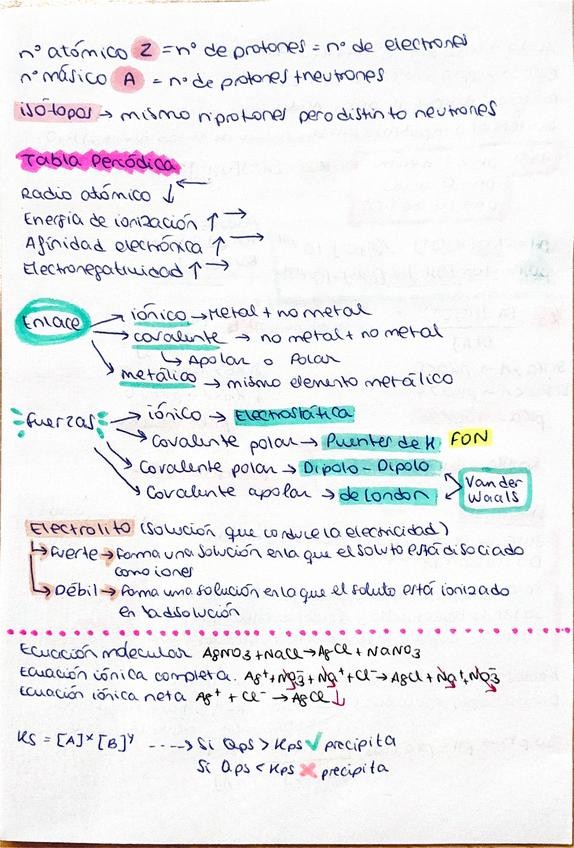 nº atómico Z = nº de protones = nº de electrones
nº másico A = nº de protones + neutrones
isótopos → mismo nº protones pero distinto neutrones
Tabla Periódica
Radio atómico ↓ ←
Energía de ionización ↑ →
Afinidad electrónica ↑ →
Electronegatividad ↑ →
Enlace → iónico → Metal + no metal
→ covalente → no metal + no metal
↳ Apolar o Polar
→ metálico → mismo elemento metálico
Fuerzas → iónico → Electrostática
→ Covalente polar → Puentes de H FON
→ Covalente polar → Dipolo - Dipolo
→ Covalente apolar → de London
Van der
Waals
Electrolito (solución que conduce la electricidad)
↳ Fuerte → Forma una solución en la que el soluto está disociado
como iones
↳ Débil → Forma una solución en la que el soluto está ionizado
en la disolución
Ecuación molecular AgNO3 + NaCl → AgCl + NaNO3
Ecuación iónica completa. Ag⁺ + NO3⁻ + Na⁺ + Cl⁻ → AgCl + Na⁺ + NO3⁻
Ecuación iónica neta Ag⁺ + Cl⁻ → AgCl ↓
KS = [A]ˣ [B]ʸ ----> Si Qps > Kps ✓ precipita
Si Qps < Kps ✗ precipita